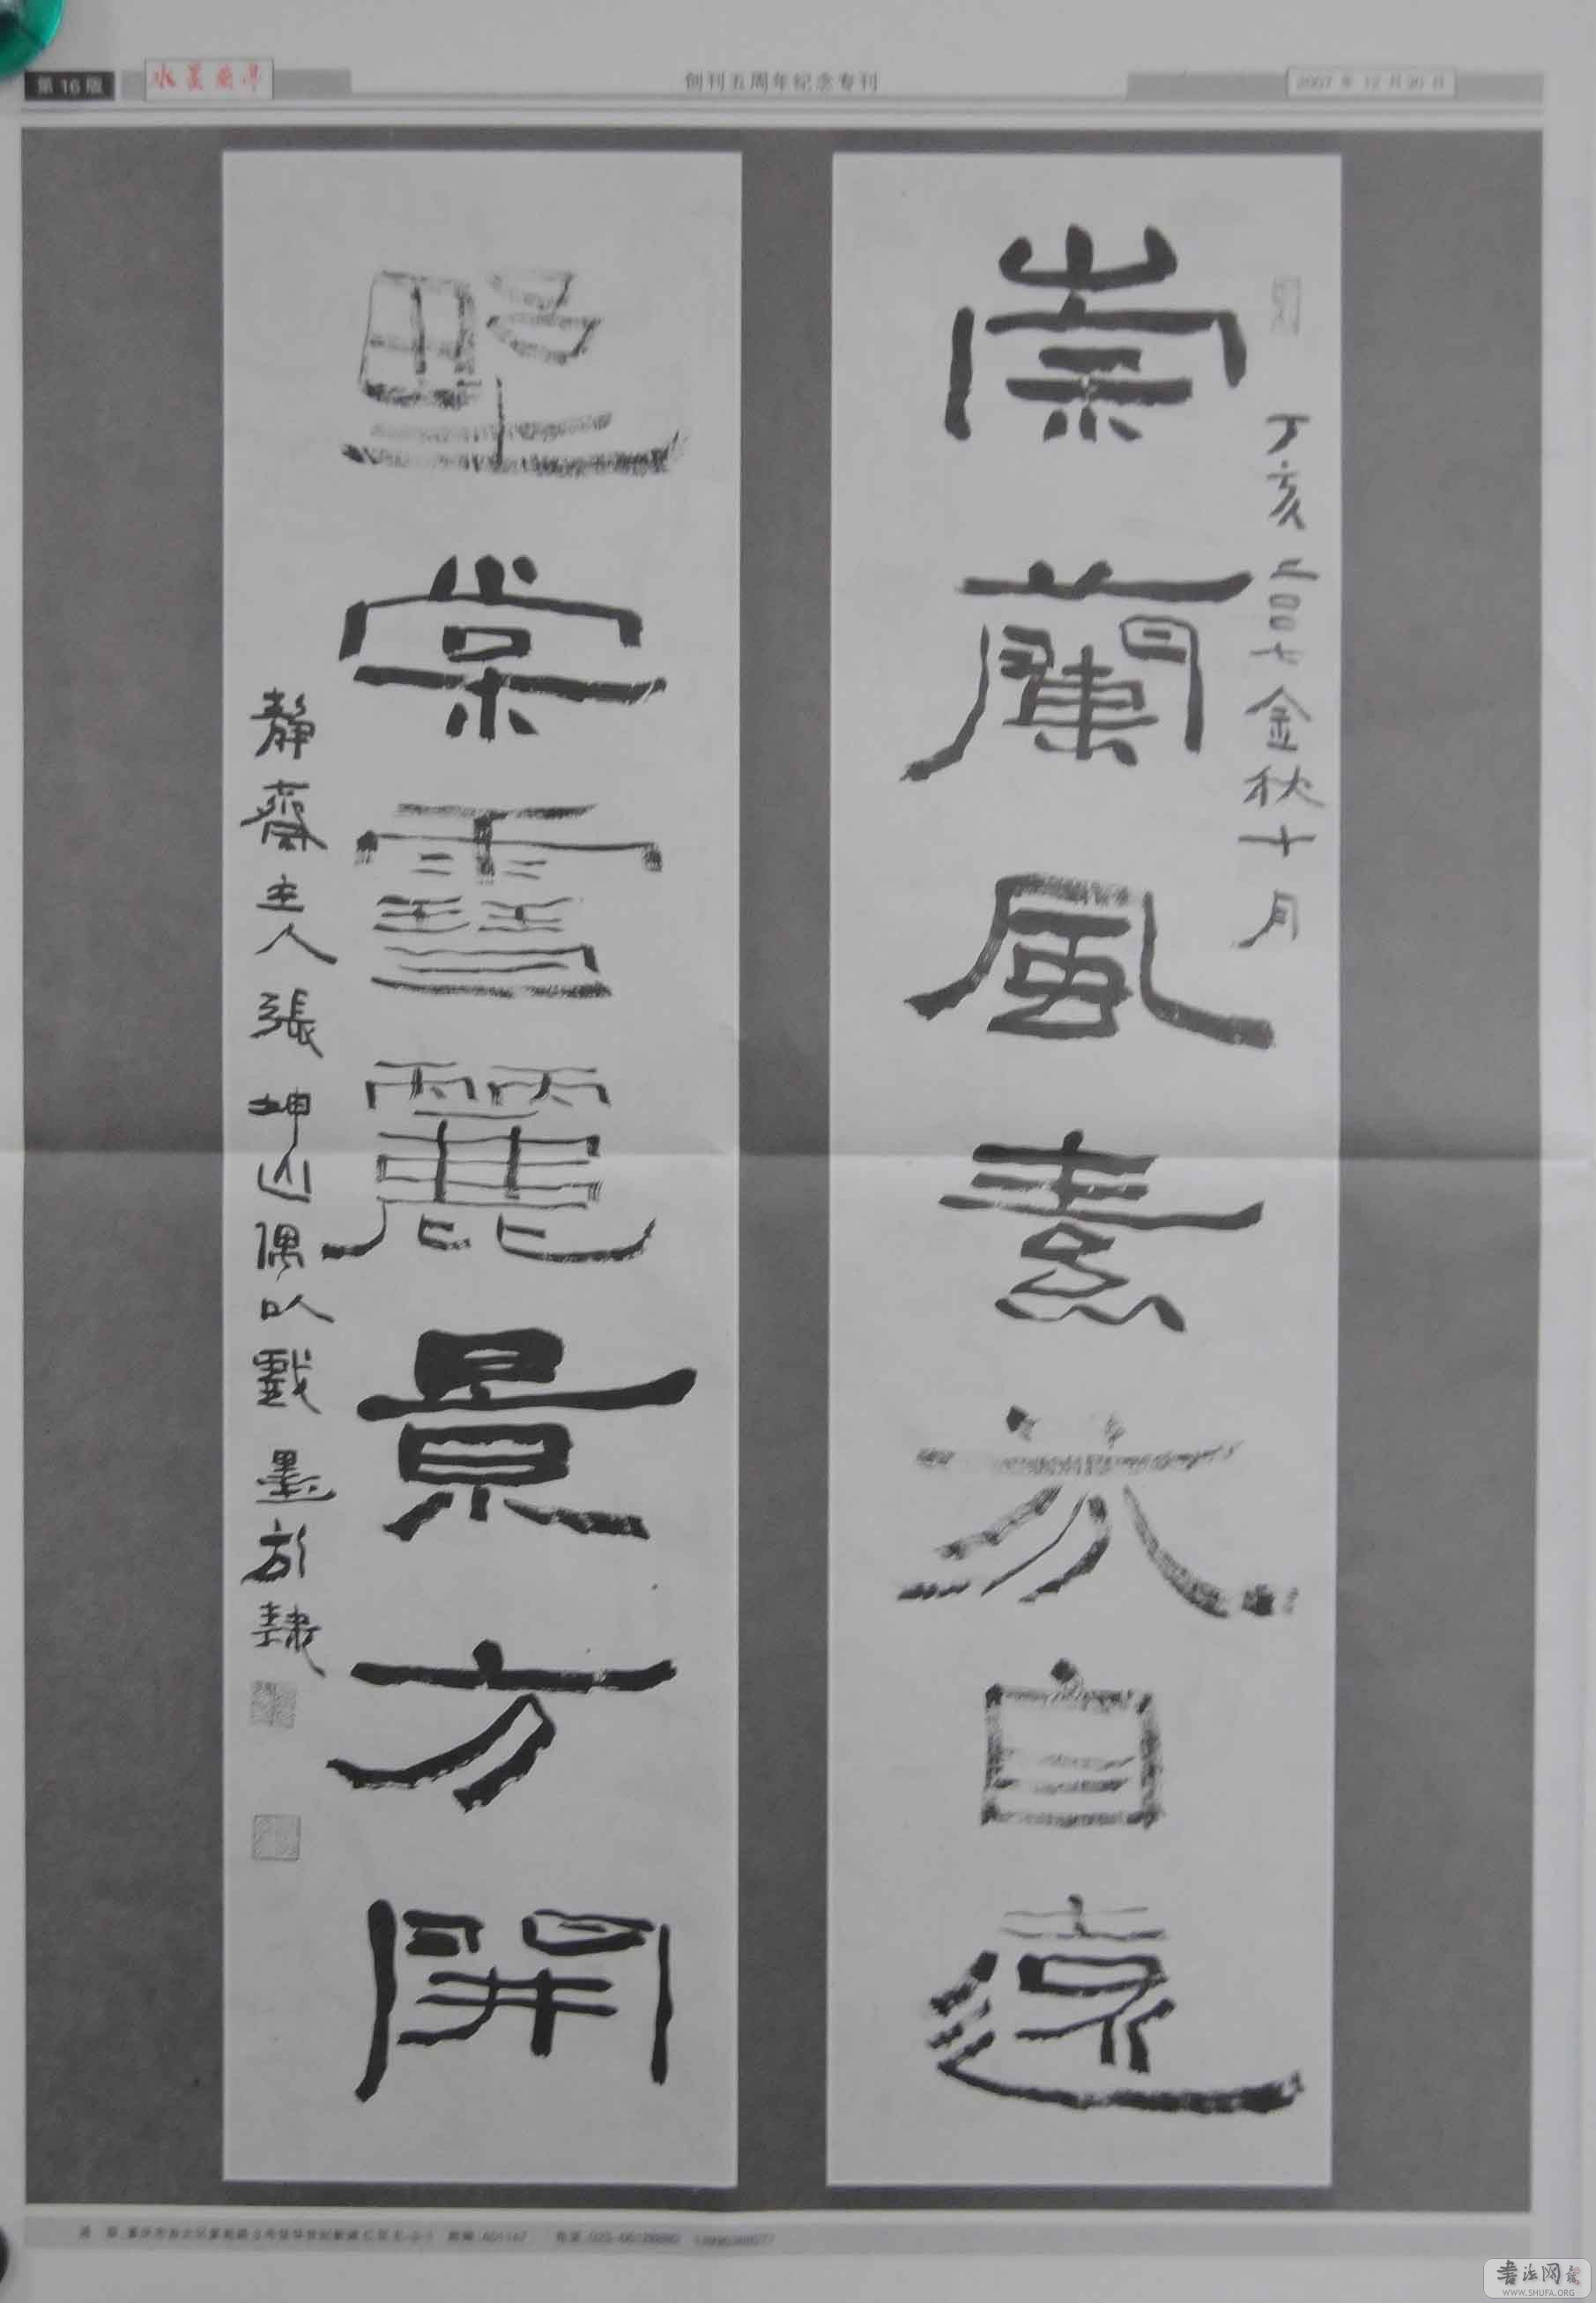 第16版
水墨兰亭
创刊五周年纪念专刊
2007年12月30日
崇蘭風素芬自遠
丁亥二〇〇七金秋十月
棠雪麗景方開
靜齋主人張坤山偶以戲墨於隸
书法网
WWW.SHUFA.ORG